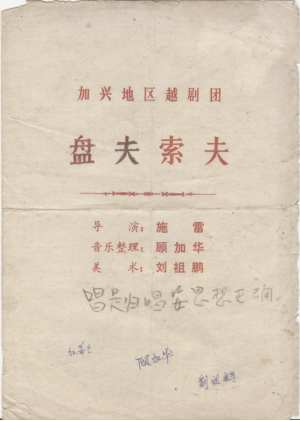 加兴地区越剧团
盘夫索夫
导 演：施 雷
音乐整理：顾加华
美 术：刘祖鹏
唱是归唱 思想正确
顾加华